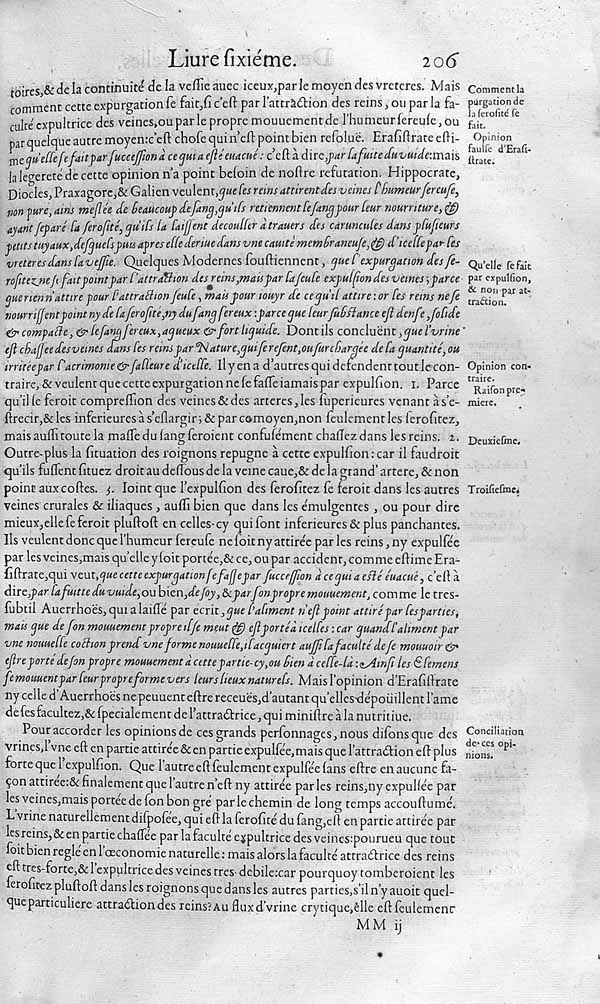 Liure ſixiéme. 206
toires, & de la continuité de la veſſie auec iceux, par le moyen des vreteres. Mais
comment cette expurgation ſe fait, ſi c'eſt par l'attraction des reins, ou par la fa-
culté expultrice des veines, ou par le propre mouuement de l'humeur ſereuſe, ou
par quelque autre moyen: c'eſt choſe qui n'eſt point bien reſoluë. Eraſiſtrate eſti-
me qu'elle ſe fait par ſucceſſion à ce qui a eſté euacué: c'eſt à dire, par la fuite du vuide: mais
la legereté de cette opinion n'a point beſoin de noſtre refutation. Hippocrate,
Diocles, Praxagore, & Galien veulent, que les reins attirent des veines l'humeur ſereuſe,
non pure, ains meſlée de beaucoup de ſang, qu'ils retiennent le ſang pour leur nourriture, &
ayant ſeparé la ſeroſité, qu'ils la laiſſent decouller à trauers des caruncules dans pluſieurs
petits tuyaux, deſquels puis apres elle deriue dans vne cauité membraneuſe, & d'icelle par les
vreteres dans la veſſie. Quelques Modernes ſouſtiennent, que l'expurgation des ſe-
roſitez ne ſe fait point par l'attraction des reins, mais par la ſeule expulſion des veines; parce
que rien n'attire pour l'attraction ſeule, mais pour iouyr de ce qu'il attire: or les reins ne ſe
nourriſſent point ny de la ſeroſité, ny du ſang ſereux: parce que leur ſubſtance eſt denſe, ſolide
& compacte, & le ſang ſereux, aqueux & fort liquide. Dont ils concluënt, que l'vrine
eſt chaſſée des veines dans les reins par Nature, qui ſe reſent, ou ſurchargée de la quantité, ou
irritée par l'acrimonie & ſalleure d'icelle. Il y en a d'autres qui defendent tout le con-
traire, & veulent que cette expurgation ne ſe faſſe iamais par expulſion. 1. Parce
qu'il ſe feroit compreſſion des veines & des arteres, les ſuperieures venant à s'e-
ſtrecir, & les inferieures à s'eſlargir; & par ce moyen, non ſeulement les ſeroſitez,
mais auſſi toute la maſſe du ſang ſeroient confuſément chaſſez dans les reins. 2.
Outre-plus la ſituation des roignons repugne à cette expulſion: car il faudroit
qu'ils fuſſent ſituez droit au deſſous de la veine caue, & de la grand' artere, & non
point aux coſtes. 3. Ioint que l'expulſion des ſeroſitez ſe feroit dans les autres
veines crurales & iliaques, auſſi bien que dans les émulgentes, ou pour dire
mieux, elle ſe feroit pluſtoſt en celles-cy qui ſont inferieures & plus panchantes.
Ils veulent donc que l'humeur ſereuſe ne ſoit ny attirée par les reins, ny expulſée
par les veines, mais qu'elle y ſoit portée, & ce, ou par accident, comme eſtime Era-
ſiſtrate, qui veut, que cette expurgation ſe faſſe par ſucceſſion à ce qui a eſté éuacué, c'eſt à
dire, par la fuitte du vuide, ou bien, de ſoy, & par ſon propre mouuement, comme le tres-
ſubtil Auerrhoës, qui a laiſſé par écrit, que l'aliment n'eſt point attiré par les parties,
mais que de ſon mouuement propre il ſe meut & eſt porté à icelles: car quand l'aliment par
vne nouuelle coction prend vne forme nouuelle, il acquiert auſſi la faculté de ſe mouuoir &
eſtre porté de ſon propre mouuement à cette partie-cy, ou bien à celle-là: Ainſi les Elemens
ſe mouuent par leur propre forme vers leurs lieux naturels. Mais l'opinion d'Eraſiſtrate
ny celle d'Auerrhoës ne peuuent eſtre receuës, d'autant qu'elles dépoüillent l'ame
de ſes facultez, & ſpecialement de l'attractrice, qui miniſtre à la nutritiue.
Pour accorder les opinions de ces grands perſonnages, nous diſons que des
vrines, l'vne eſt en partie attirée & en partie expulſée, mais que l'attraction eſt plus
forte que l'expulſion. Que l'autre eſt ſeulement expulſée ſans eſtre en aucune fa-
çon attirée: & finalement que l'autre n'eſt ny attirée par les reins, ny expulſée par
les veines, mais portée de ſon bon gré par le chemin de long temps accouſtumé.
L'vrine naturellement diſpoſée, qui eſt la ſeroſité du ſang, eſt en partie attirée par
les reins, & en partie chaſſée par la faculté expultrice des veines: pourueu que tout
ſoit bien reglé en l'œconomie naturelle: mais alors la faculté attractrice des reins
eſt tres-forte, & l'expultrice des veines tres-debile: car pourquoy tomberoient les
ſeroſitez pluſtoſt dans les roignons que dans les autres parties, s'il n'y auoit quel-
que particuliere attraction des reins? Au flux d'vrine crytique, elle eſt ſeulement
MM ij
Comment la
purgation de
la ſeroſité ſe
fait.
Opinion
fauſſe d'Eraſi-
ſtrate.
Qu'elle ſe fait
par expulſion,
& non par at-
traction.
Opinion con-
traire.
Raiſon pre-
miere.
Deuxieſme.
Troiſieſme.
Conciliation
de ces opi-
nions.